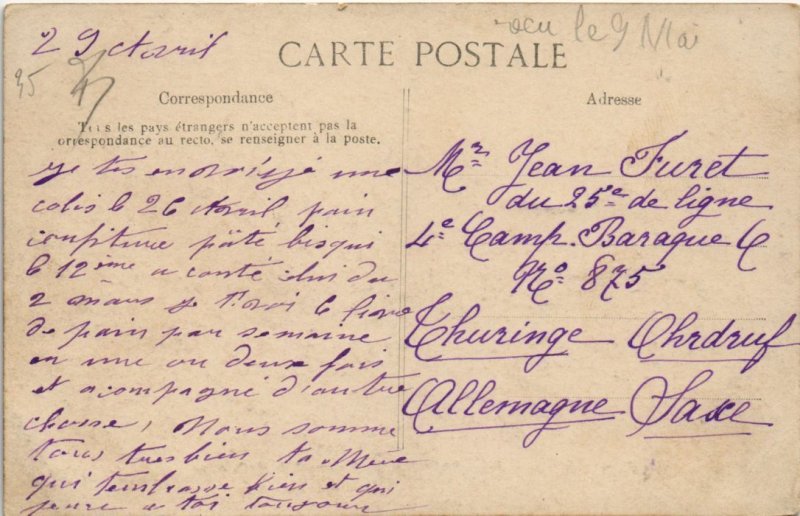 29 Avril
recu le 9 Mai
35
CARTE POSTALE
Correspondance
Tous les pays étrangers n'acceptent pas la
correspondance au recto, se renseigner à la poste.
je tes une
colis le 26 Avril pain
confiture pâté bisqui
le 12ème a conté du
2 mars je le 6 livre
de pain par semaine
en une ou deux fois
et acompagné d'autre
chosse, Nous somme
tous tres bien ta Mère
qui tembrasse bien et qui
pence a toi toujours
Adresse
Mr Jean Furet
du 25e de ligne
4e Camp. Baraque 6
No 875
Thuringe Ohrdruf
Allemagne Saxe